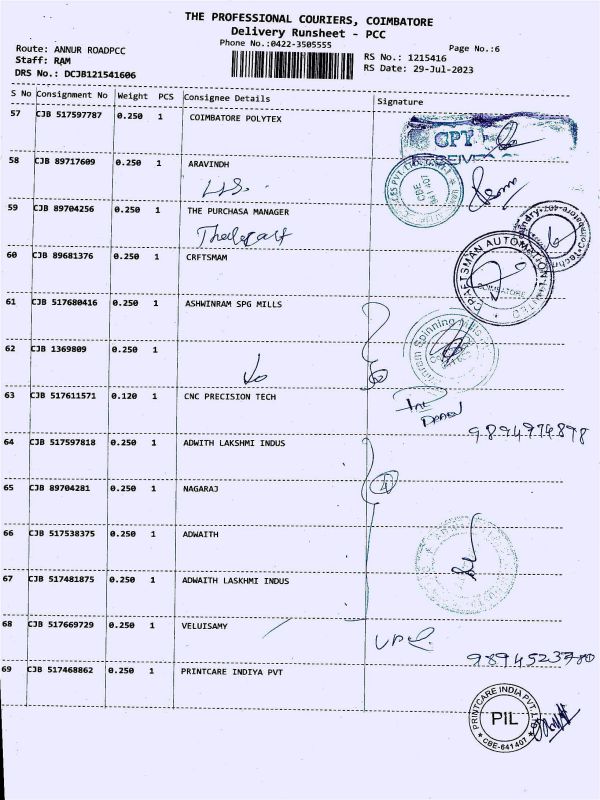 THE PROFESSIONAL COURIERS, COIMBATORE
Delivery Runsheet - PCC
Phone No.:0422-3505555
Page No.:6
Route: ANNUR ROADPCC
Staff: RAM
DRS No.: DCJB121541606
RS No.: 1215416
RS Date: 29-Jul-2023
S No Consignment No Weight PCS Consignee Details Signature
57 CJB 517597787 0.250 1 COIMBATORE POLYTEX
CPY
58 CJB 89717609 0.250 1 ARAVINDH
59 CJB 89704256 0.250 1 THE PURCHASA MANAGER
60 CJB 89681376 0.250 1 CRFTSMAM
CRAFTSMAN AUTOMATION LIMITED
COIMBATORE
61 CJB 517680416 0.250 1 ASHWINRAM SPG MILLS
Spinning Mills
62 CJB 1369809 0.250 1
63 CJB 517611571 0.120 1 CNC PRECISION TECH
9894974898
64 CJB 517597818 0.250 1 ADWITH LAKSHMI INDUS
65 CJB 89704281 0.250 1 NAGARAJ
66 CJB 517538375 0.250 1 ADWAITH
67 CJB 517481875 0.250 1 ADWAITH LASKHMI INDUS
68 CJB 517669729 0.250 1 VELUISAMY
9894523780
69 CJB 517468862 0.250 1 PRINTCARE INDIYA PVT
PRINTCARE INDIA PVT. LTD.
PIL
CBE-641407